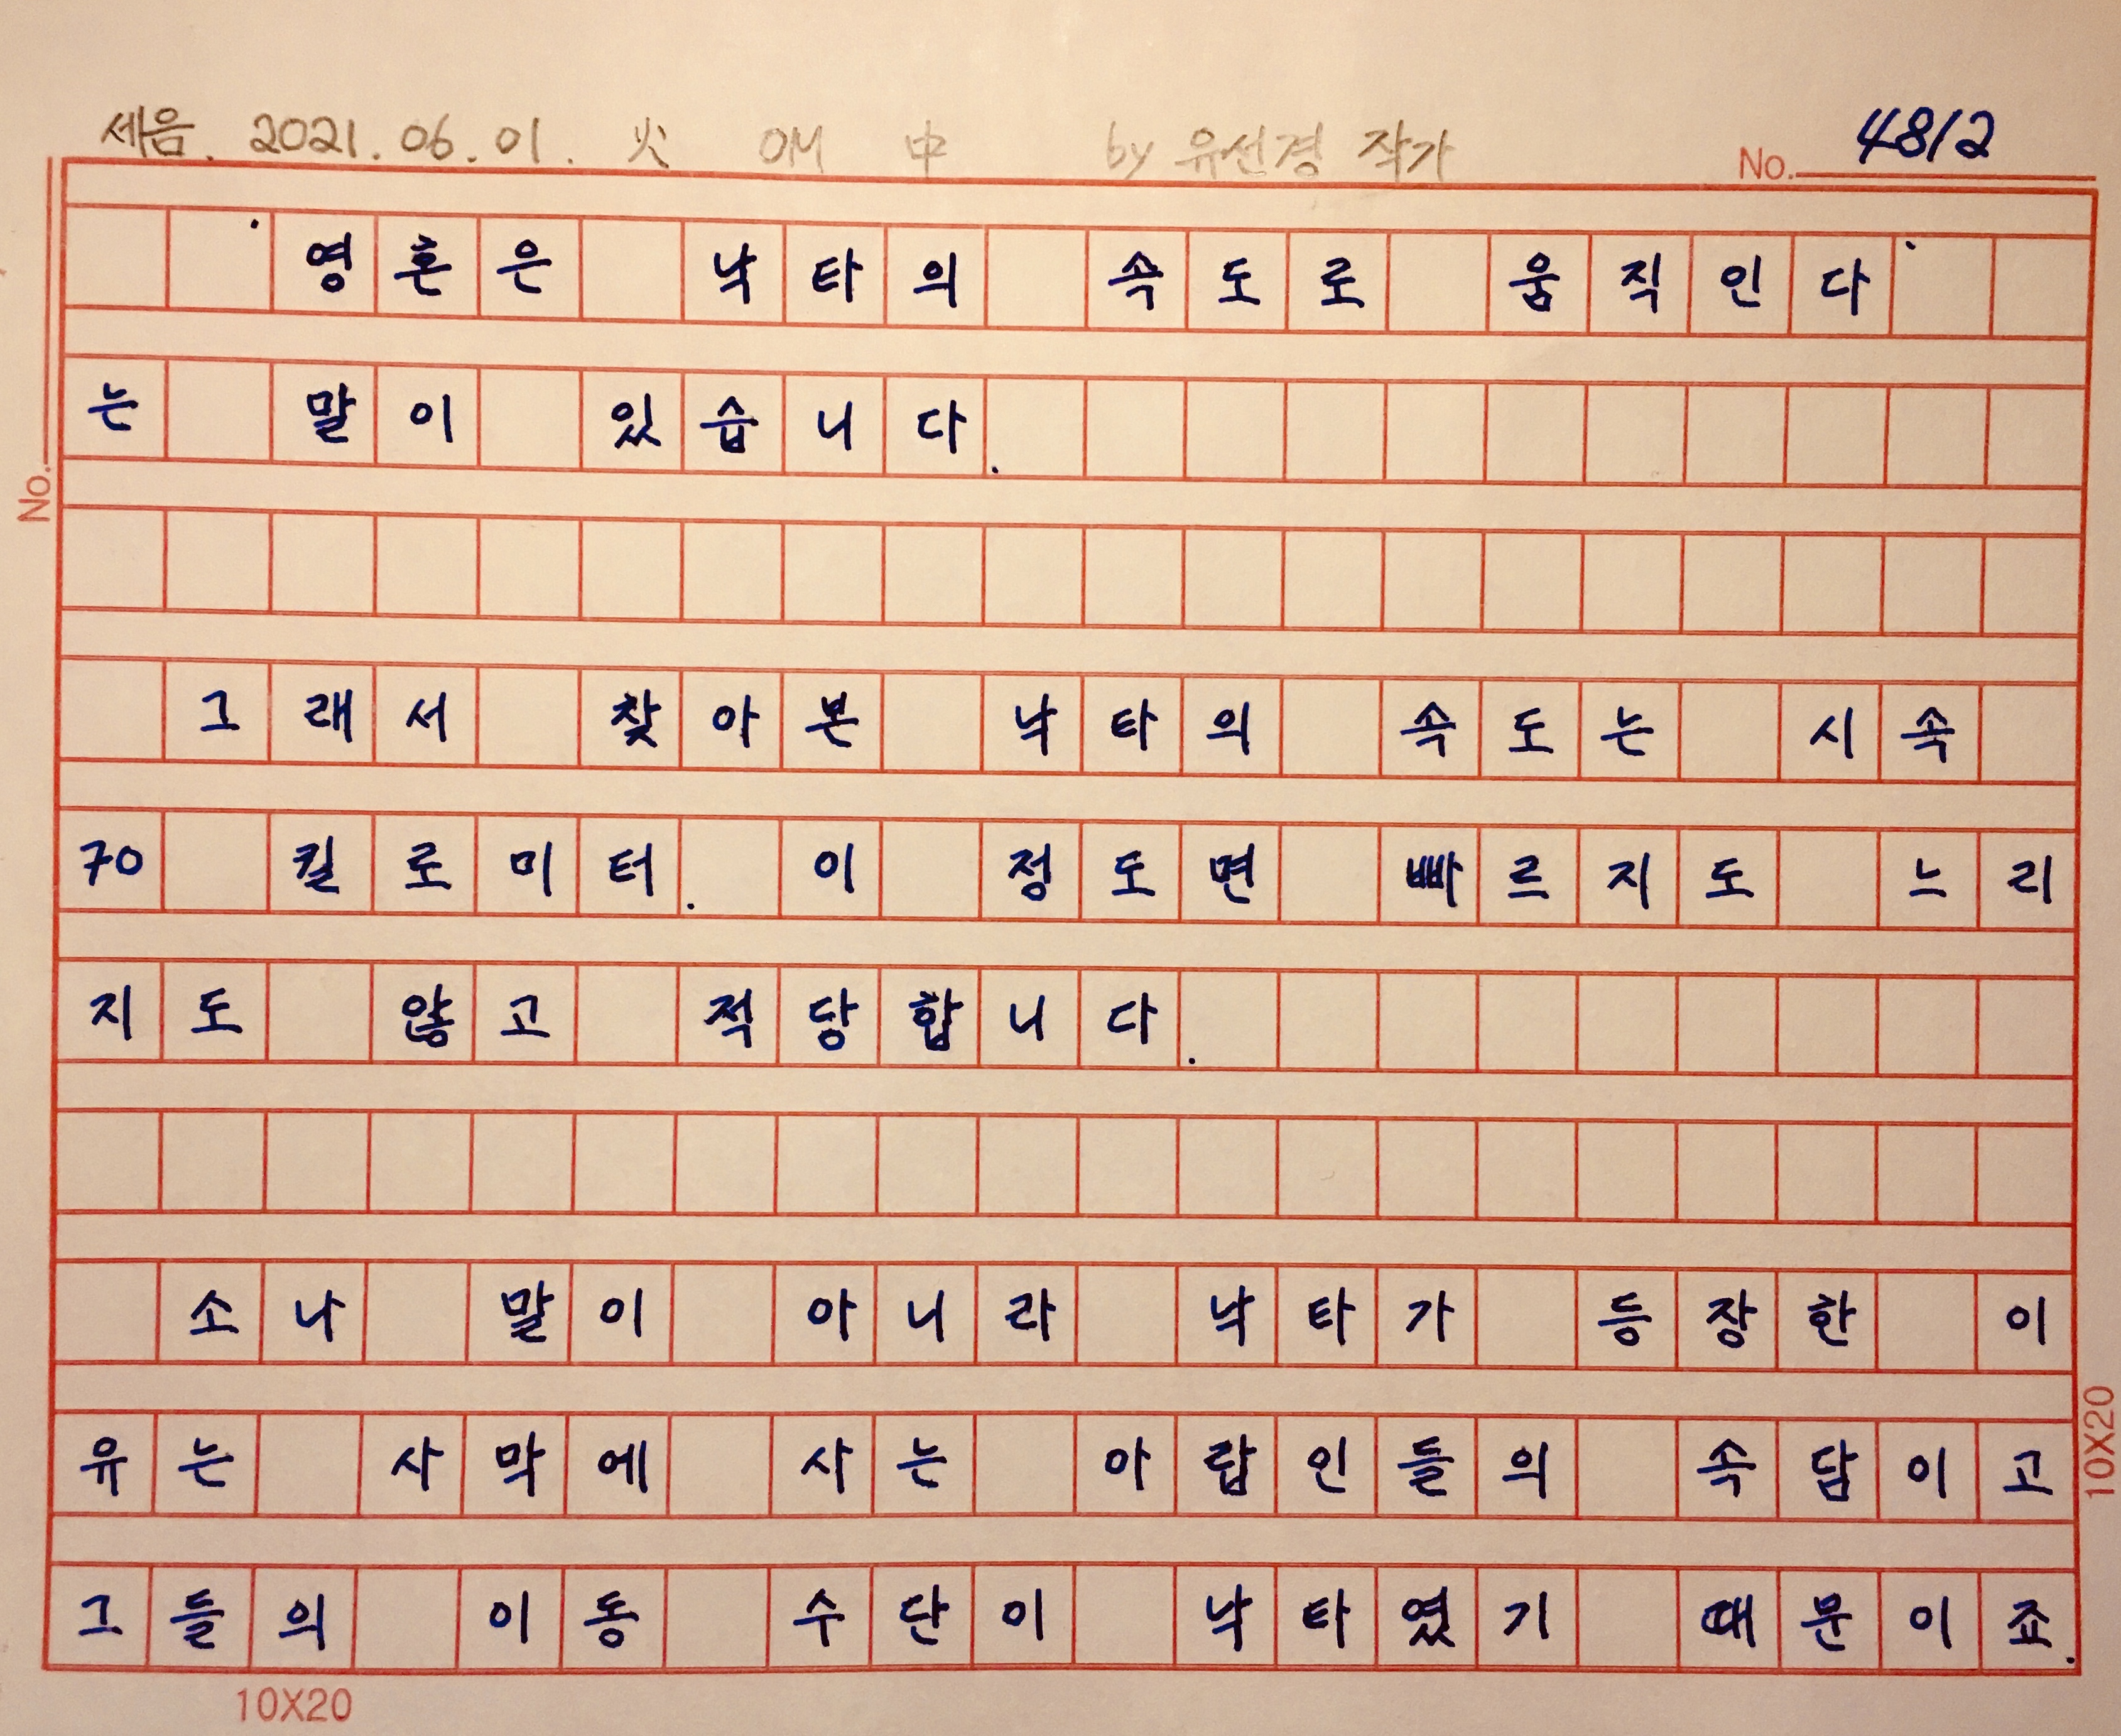 세음. 2021. 06. 01. 火 OM 中 by 유선경 작가
No. 4812
' 영혼은 낙타의 속도로 움직인다 '
는 말이 있습니다.
그래서 찾아본 낙타의 속도는 시속
70 킬로미터. 이 정도면 빠르지도 느리
지도 않고 적당합니다.
소나 말이 아니라 낙타가 등장한 이
유는 사막에 사는 아랍인들의 속담이고
그들의 이동 수단이 낙타였기 때문이죠.
No.
10X20
10X20